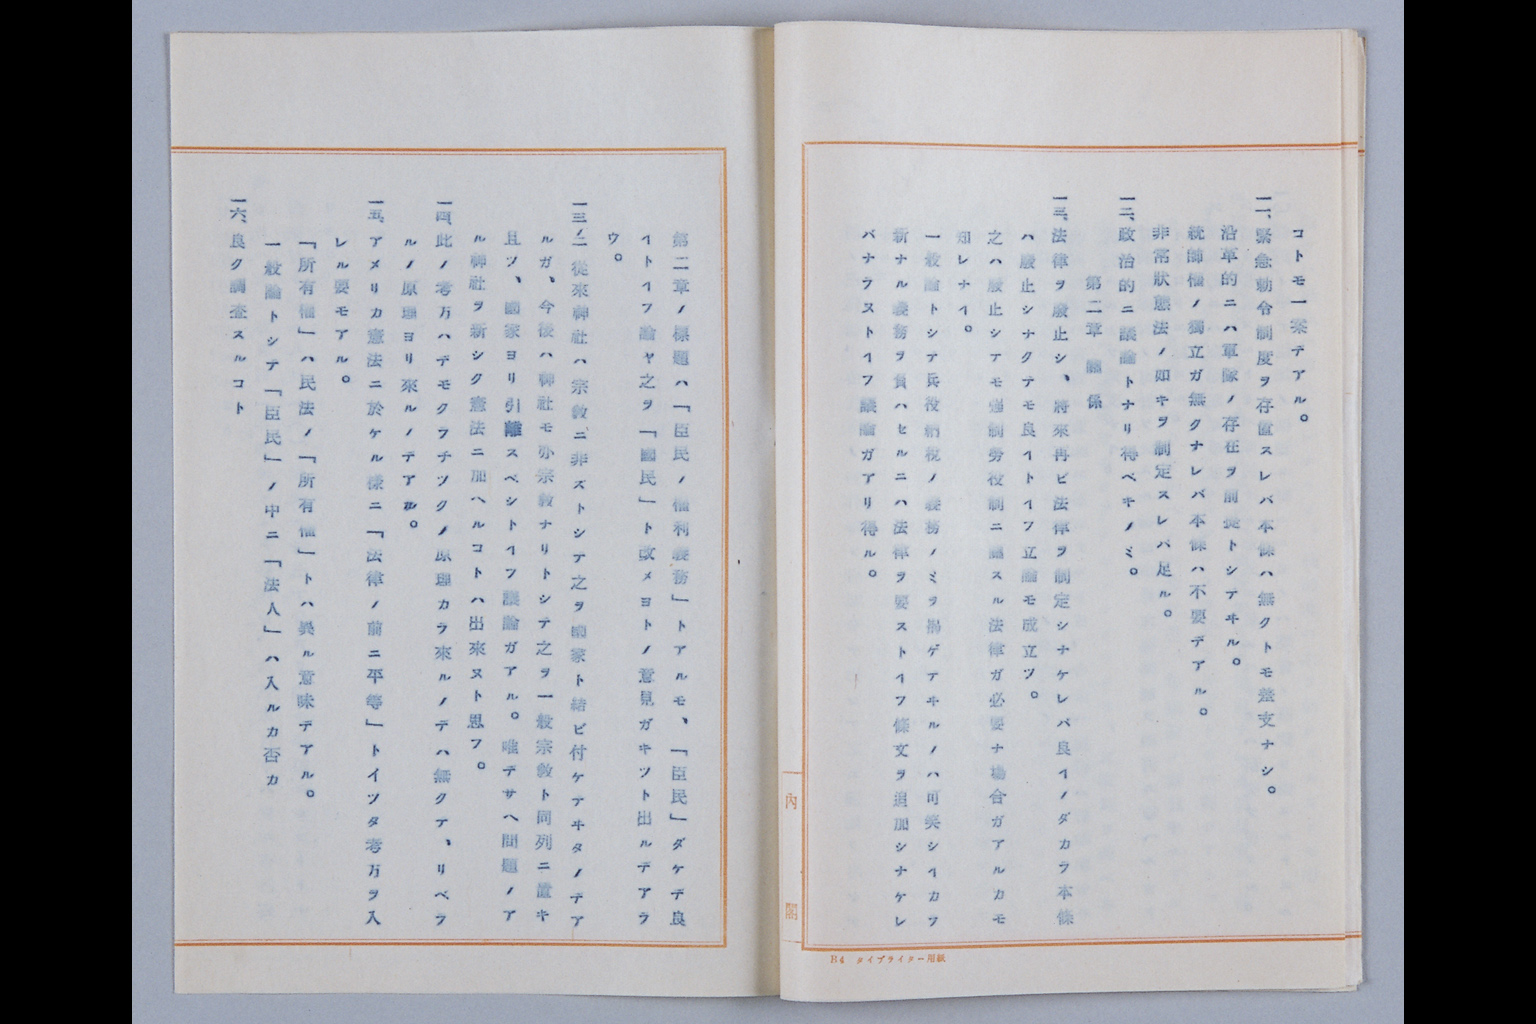 コトモ一案デアル。
一一、緊急勅令制度ヲ存置スレバ本條ハ無クトモ差支ナシ。
沿革的ニハ軍隊ノ存在ヲ前提トシテヰル。
統帥權ノ獨立ガ無クナレバ本條ハ不要デアル。
非常狀態法ノ如キヲ制定スレバ足ル。
一二、政治的ニ議論トナリ得ベキノミ。
第二章 關係
一三、法律ヲ廢止シ、將來再ビ法律ヲ制定シナケレバ良イノダカラ本條
ハ廢止シナクテモ良イトイフ立論モ成立ツ。
之ハ廢止シテモ强制勞役制ニ關スル法律ガ必要ナ場合ガアルカモ
知レナイ。
一般論トシテ兵役納稅ノ義務ノミヲ揭ゲテヰルノハ可笑シイカラ
新ナル義務ヲ負ハセルニハ法律ヲ要ストイフ條文ヲ追加シナケレ
バナラヌトイフ議論ガアリ得ル。
內閣
B4 タイプライター用紙
第二章ノ標題ハ「臣民ノ權利義務」トアルモ、「臣民」ダケデ良
イトイフ論ヤ之ヲ「國民」ト改メヨトノ意見ガキツト出ルデアラ
ウ。
一三ノ二 從來神社ハ宗敎ニ非ズトシテ之ヲ國家ト結ビ付ケテヰタノデア
ルガ、今後ハ神社モ亦宗敎ナリトシテ之ヲ一般宗敎ト同列ニ置キ
且ツ、國家ヨリ引離スベシトイフ議論ガアル。唯デサヘ問題ノア
ル神社ヲ新シク憲法ニ加ヘルコトハ出來ヌト思フ。
一四、此ノ考方ハデモクラチツクノ原理カラ來ルノデハ無クテ、リベラ
ルノ原理ヨリ來ルノデアル。
一五、アメリカ憲法ニ於ケル樣ニ「法律ノ前ニ平等」トイツタ考方ヲ入
レル要モアル。
「所有權」ハ民法ノ「所有權」トハ異ル意味デアル。
一般論トシテ「臣民」ノ中ニ「法人」ハ入ルカ否カ
一六、良ク調査スルコト